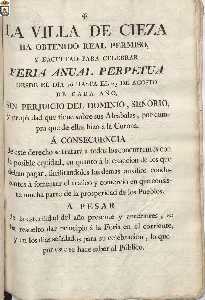 LA VILLA DE CIEZA
HA OBTENIDO REAL PERMISO,
Y FACULTAD PARA CELEBRAR
FERIA ANUAL PERPETUA
DESDE EL DIA HASTA EL DE AGOSTO
DE CADA AÑO,
SIN PERJUICIO DEL DOMINIO, SEÑORIO,
y propiedad que tiene sobre sus Alcabalas, por com-
pra que de ellas hizo á la Corona.
Á CONSECUENCIA
de este derecho se tratará á todos los concurrentes con
la posible equidad, en quanto á la exaccion de los que
deban pagar, facilitandoles las demas medios condu-
centes á fomentar el trafico y comercio en que consis-
te mucha parte de la prosperidad de los Pueblos.
Á PESAR
de la esterilidad del año presente y anteriores, se
ha resuelto dar principio á la Feria en el corriente,
y en los dias señalados para su celebracion, lo que
por se hace saber al Público.